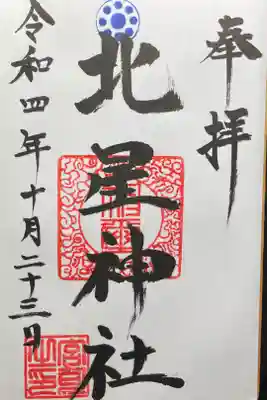 奉拝
北星神社
令和四年十月二十三日